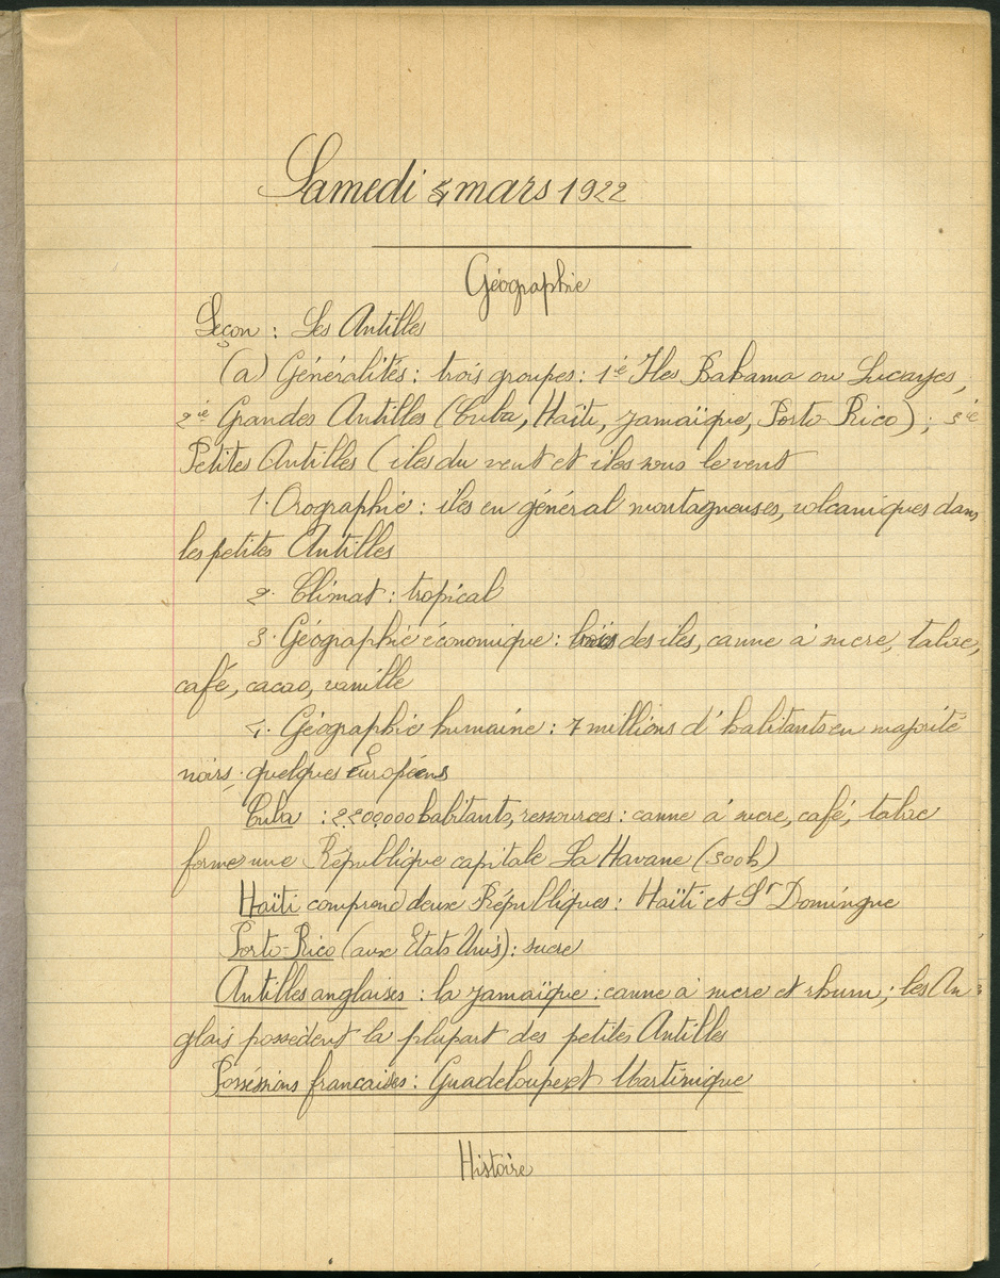 Samedi 4 mars 1922
Géographie
Leçon : Les Antilles
(a) Généralités : trois groupes : 1ié Iles Bahama ou Lucayes,
2ié Grandes Antilles (Cuba, Haïti, Jamaïque, Porto-Rico) ; 3ié
Petites Antilles (iles du vent et iles sous le vent
1. Orographie : iles en général montagneuses, volcaniques dans
les petites Antilles
2. Climat : tropical
3. Géographie économique : bois des iles, canne à sucre, tabac,
café, cacao, vanille
4. Géographie humaine : 7 millions d'habitants en majorité
noirs. quelques Européens
Cuba : 2200000 habitants, ressources : canne à sucre, café, tabac
forme une République capitale La Havane (300h)
Haïti comprend deux Républiques : Haïti et St Domingue
Porto-Rico (aux Etats Unis) : sucre
Antilles anglaises : la Jamaïque : canne à sucre et rhum ; les An
glais possèdent la plupart des petites Antilles
Posséssions francaises : Guadeloupe et Martinique
Histoire